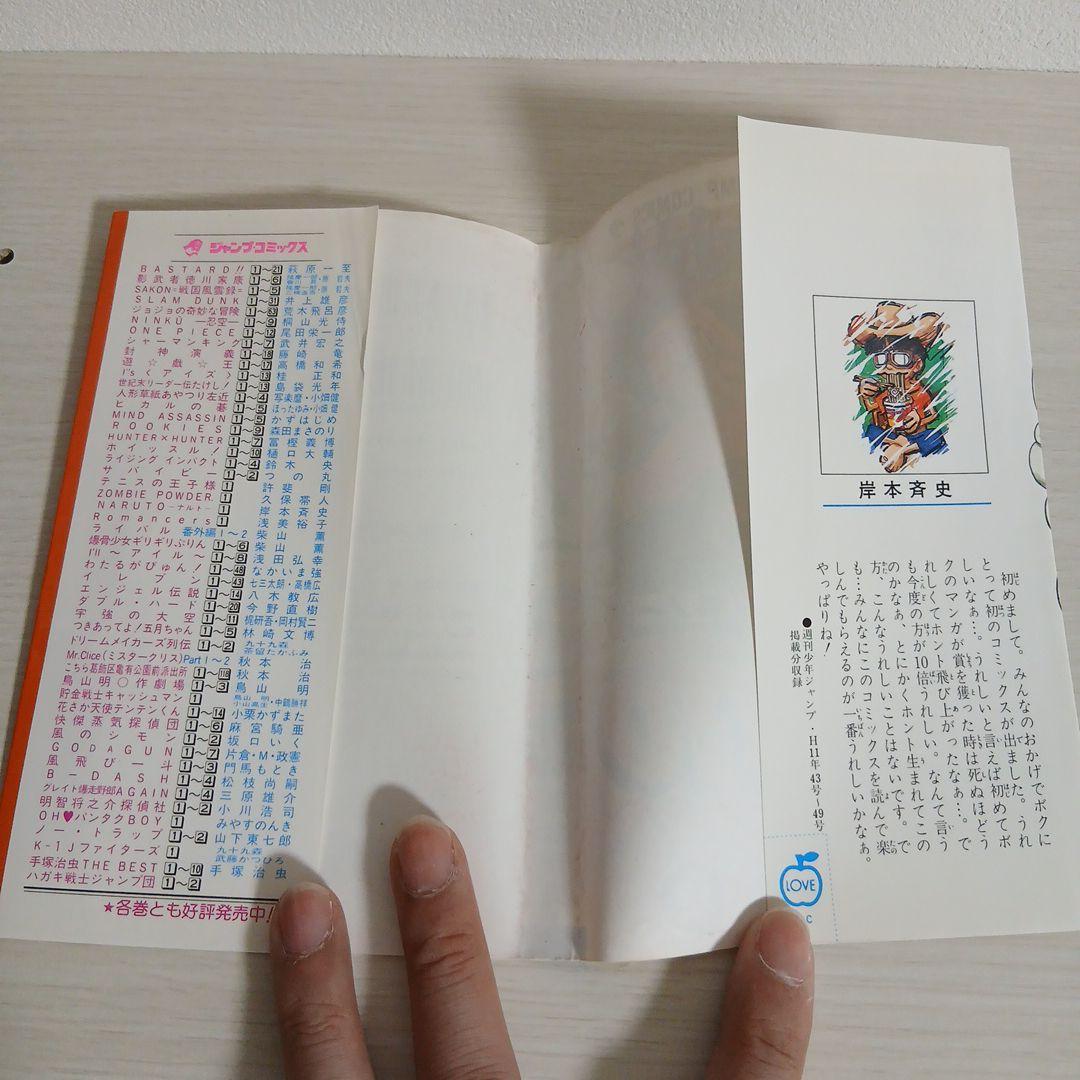 ジャンプ・コミックス
BASTARD!! 1〜21 萩原一至
影武者徳川家康 1〜6
SAKON=戦国風雲録= 1〜5
SLAM DUNK 1〜31 井上雄彦
ジョジョの奇妙な冒険 1〜63 荒木飛呂彦
NINKŪ —忍空— 1〜9 桐山光侍
ONE PIECE 1〜12 尾田栄一郎
シャーマンキング 1〜7 武井宏之
封神演義 1〜18 藤崎竜
遊☆戯☆王 1〜17 高橋和希
I"s〈アイズ〉 1〜13 桂正和
世紀末リーダー伝たけし! 1〜13 島袋光年
人形草紙あやつり左近 1〜4 写楽麿・小畑健
ヒカルの碁 1〜5 ほったゆみ・小畑健
MIND ASSASSIN 1〜5 かずはじめ
ROOKIES 1〜9 森田まさのり
HUNTER×HUNTER 1〜7 冨樫義博
ホイッスル! 1〜10 樋口大輔
ライジング インパクト 1〜4 鈴木央
サバイビー 1〜2 つの丸
テニスの王子様 1 許斐剛
ZOMBIE POWDER. 1 久保帯人
NARUTO—ナルト— 1 岸本斉史
Romancers 1 浅美裕子
ライバル 番外編1〜2 柴山薫
爆骨少女ギリギリぷりん 1〜6 柴山薫
I'll〜アイル〜 1〜8 浅田弘幸
わたるがぴゅん! 1〜48 なかいま強
イレブン 1〜43 七三太朗・高橋広
エンジェル伝説 1〜14 八木教広
ダブル・ハード 1〜20 今野直樹
宇強の大空 1〜11 梶研吾・岡村賢二
つきあってよ!五月ちゃん 1〜5 林崎文博
ドリームメイカーズ列伝 1〜2 九十九森 茶留たかふみ
Mr.Clice(ミスタークリス) Part 1〜2 秋本治
こちら葛飾区亀有公園前派出所 1〜118 秋本治
鳥山明○作劇場 1〜3 鳥山明
貯金戦士キャッシュマン 1 鳥山明 小山高生・中鶴勝祥
花さか天使テンテンくん 1〜14 小栗かずまた
快傑蒸気探偵団 1〜6 麻宮騎亜
風のシモン 1〜2 坂口いく
GODAGUN 1〜7 片倉・M・政憲
風飛び一斗 1〜3 門馬もとき
B-DASH 1〜4 松枝尚嗣
グレイト爆走野郎AGAIN 1〜4 三原雄介
明智将之介探偵社 1〜2 小川浩司
OH♥パンタクBOY 1 みやすのんき
ノー・トラップ 1〜2 山下東七郎
K-1Jファイターズ 1 九十九森 武藤かつひろ
手塚治虫THE BEST 1〜10 手塚治虫
ハガキ戦士ジャンプ団 1〜2
★各巻とも好評発売中!
岸本斉史
初めまして。みんなのおかげでボクに
とって初のコミックスが出ました。うれ
しいなぁ…。うれしいと言えば初めてボ
クのマンガが賞を獲った時は死ぬほどう
れしくてホント飛び上がったなぁ…。で
も今度の方が10倍うれしい。なんて言う
のかなぁ、とにかくホント生まれてこの
方、こんなうれしいことはないです。で
も…みんなにこのコミックスを読んで楽
しんでもらえるのが一番うれしいかなぁ。
やっぱりね!
●週刊少年ジャンプ・H11年43号〜49号
掲載分収録
LOVE
C